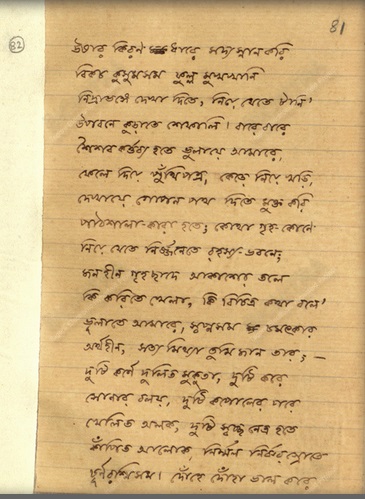 81
82
উষার কিরণ ধারে সদ্য স্নান করি
বিকচ কুসুমসম ফুল্ল মুখখানি
নিদ্রাভঙ্গে দেখা দিতে, নিয়ে যেতে টানি'
উপবনে কুড়াতে শেফালি। বারে বারে
শৈশব কর্ত্তব্য হতে ভুলায়ে আমারে,
ফেলে দিয়ে পুঁথিপত্র, কেড়ে নিয়ে খড়ি,
দেখায়ে গোপন পথ দিতে মুক্ত করি
পাঠশালা-কারা হতে; কোথা গৃহ-কোণে
নিয়ে যেতে নির্জ্জনেতে রহস্য-ভবনে;
জনহীন গৃহছাদে আকাশের তলে
কি করিতে খেলা, কি বিচিত্র কথা বলে'
ভুলাতে আমারে, স্বপ্নসম চমৎকার
অর্থহীন, সত্য মিথ্যা তুমি জান তার; —
দুটি কর্ণে দুলিত মুকুতা, দুটি করে
সোনার বলয়, দুটি কপোলের পরে
খেলিত অলক, দুটি স্বচ্ছ নেত্র হতে
কাঁপিত আলোক, নির্ম্মল নির্ঝর স্রোতে
চূর্ণরশ্মিসম। দোঁহে দোঁহা ভাল করে